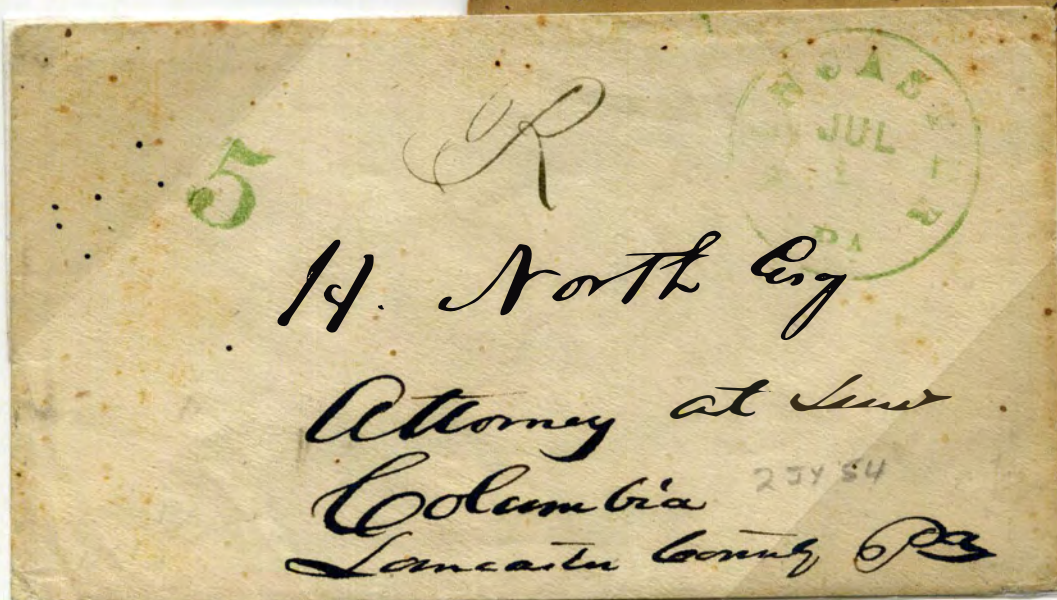 R
5
JUL
PA
H. North Esq
Attorney at Law
Columbia
2 JY 54
Lancaster County Pa